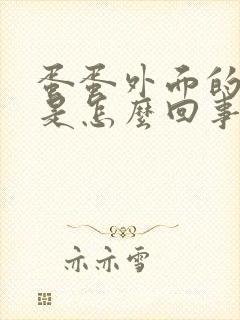 蛋蛋外面的
是怎麼回事
亦亦雪